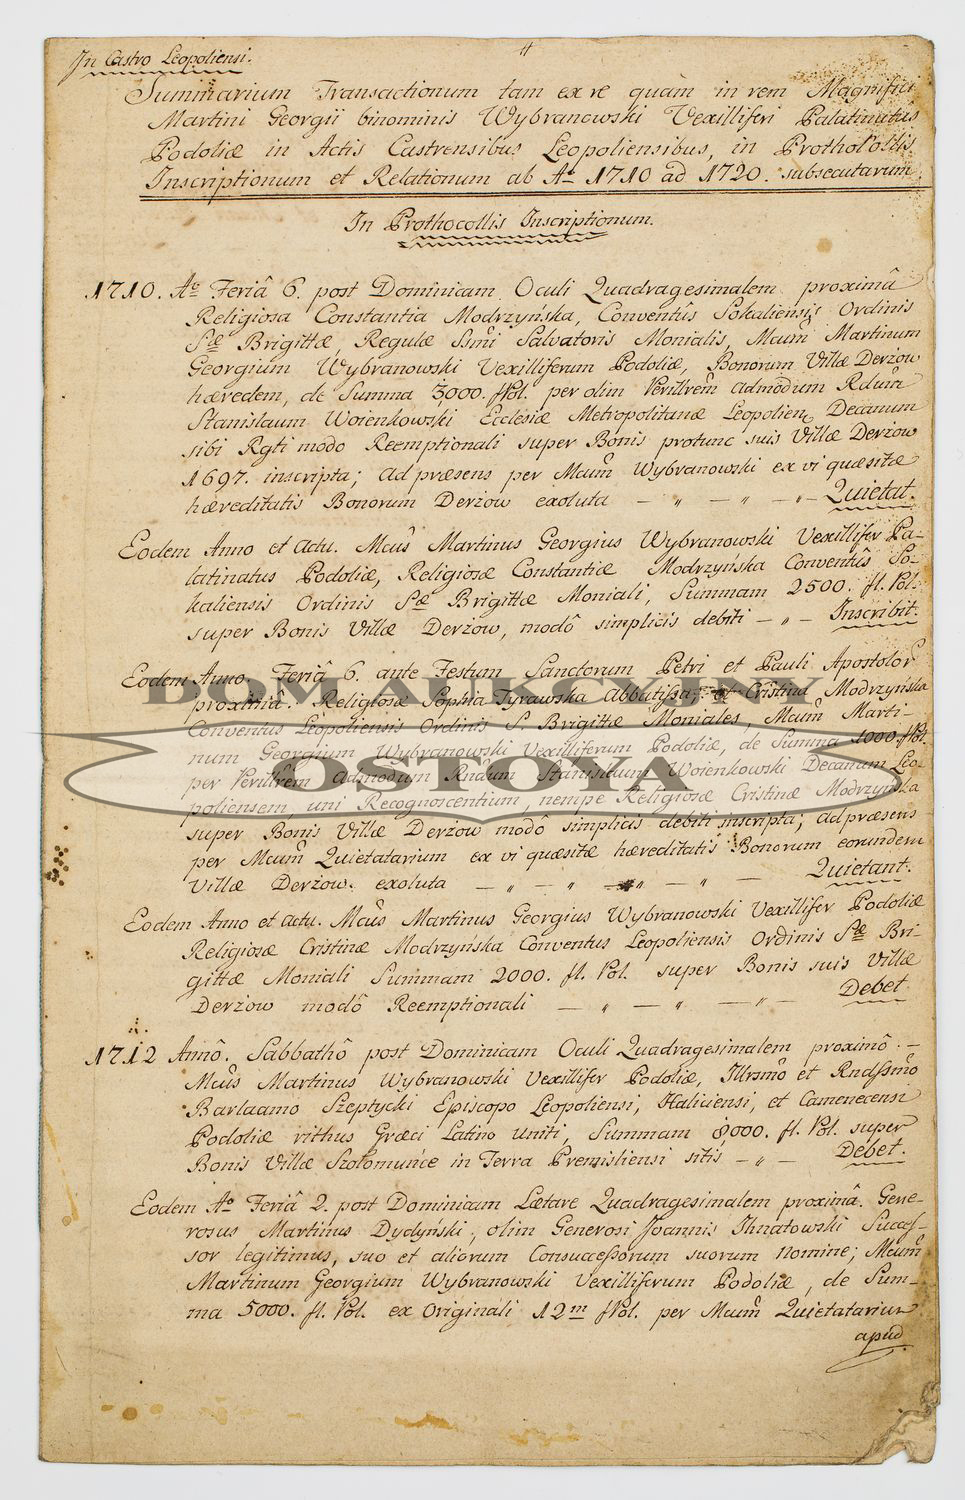 In Castro Leopoliensi.
Summarium Transactionum tam ex re quàm in rem Magnifici
Martini Georgii binominis Wybranowski Vexilliferi Palatinatus
Podoliæ in Actis Castrensibus Leopoliensibus, in Prothocollis
Inscriptionum et Relationum ab Aº 1710 ad 1720. subsecutarum
In Prothocollis Inscriptionum.
1710. Aº Feriâ 6. post Dominicam Oculi Quadragesimalem proximâ
Religiosa Constantia Modrzyńska, Conventûs Sokaliensis Ordinis
Sæ Brigittæ, Regulæ Ssmi Salvatoris Monialis, Mcum Martinum
Georgium Wybranowski Vexilliferum Podoliæ, Bonorum Villæ Derżow
hæredem, de Summa 3,000. flPol. per olim Perillrem admodum Rdum
Stanislaum Woienkowski Ecclesiæ Metropolitanæ Leopolien Decanum
sibi Rgti modo Reemptionali super Bonis protunc suis Villæ Derżow
1697. inscripta; ad præsens per Mcum Wybranowski ex vi quæsitæ
hæreditatis Bonorum Derżow exoluta — „ — „ — „ — Quietat.
Eodem Anno et actu. Mcus Martinus Georgius Wybranowski Vexillifer Pa-
latinatus Podoliæ, Religiosæ Constantiæ Modrzyńska Conventûs So-
kaliensis Ordinis Sæ Brigittæ Moniali, Summam 2500. fl. Pol.
super Bonis Villæ Derżow, modô simplicis debiti — „ — Inscribit.
Eodem Anno. Feriâ 6. ante Festum Sanctorum Petri et Pauli Apostolor
proximâ. Religiosæ Sophia Tyrawska Abbatissa et Cristina Modrzyńska
Conventus Leopoliensis Ordinis S. Brigittæ Moniales, Mcum Marti-
num Georgium Wybranowski Vexilliferum Podoliæ, de Summa 1000. flPol.
per Perillrem Admodum Rndum Stanislaum Woienkowski Decanum Leo-
poliensem, uni Recognoscentium, nempe Religiosæ Cristinæ Modrzyńska
super Bonis Villæ Derżow modô simplicis debiti inscripta; ad præsens
per Mcum Quietatarium ex vi quæsitæ hæreditatis Bonorum eorundem
Villæ Derżow. exoluta — „ — „ — „ — „ — Quietant.
Eodem Anno et actu. Mcus Martinus Georgius Wybranowski Vexillifer Podoliæ
Religiosæ Cristinæ Modrzyńska Conventus Leopoliensis Ordinis Sæ Bri-
gittæ Moniali Summam 2000. fl. Pol. super Bonis suis Villæ
Derżow modô Reemptionali — „ — „ — „ — Debet
1712 Annô. Sabbathô post Dominicam Oculi Quadragesimalem proximô. —
Mcus Martinus Wybranowski Vexillifer Podoliæ, Illrsmô et Rndssmô
Barlaamo Szeptycki Episcopo Leopoliensi, Haliciensi, et Camenecensi
Podoliæ rithus Græci Latino uniti, Summam 8,000. fl. Pol. super
Bonis Villæ Szołomuńce in Terra Premisliensi sitis — „ — Debet.
Eodem Aº Feriâ 2. post Dominicam Lætare Quadragesimalem proximâ. Gene-
rosus Martinus Dydyński, olim Generosi Joannis Ihnatowski Succes-
sor legitimus, suo et aliorum Consuccessorum suorum nomine; Mcum
Martinum Georgium Wybranowski Vexilliferum Podoliæ, de Sum-
ma 5000. fl. Pol. ex Originali 12m flPol. per Mcum Quietatarium
apud
DOM AUKCYJNY
OSTOYA